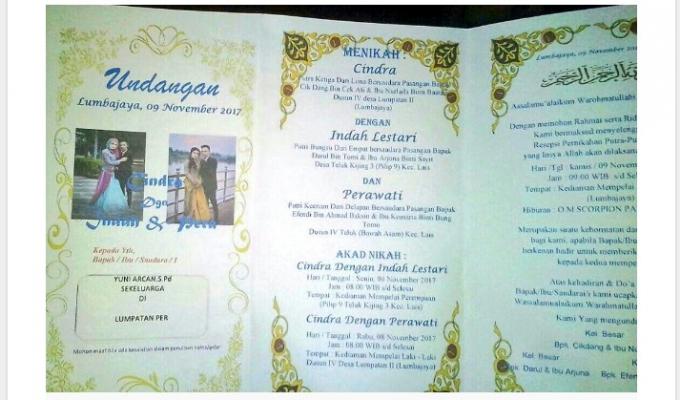 Undangan
Lumbajaya, 09 November 2017
Cindra
Dgn
Indah & Pera
Kepada Yth,
Bapak / Ibu / Saudara / I
YUNI ARCAN.S.Pd
SEKELUARGA
DI
LUMPATAN PER
MENIKAH :
Cindra
Putra Ketiga Dari Lima Bersaudara Pasangan Bapak
Cik Dang Bin Cek Ati & Ibu Nurlaila Binti
Dusun IV desa Lumpatan II
(Lumbajaya)
DENGAN
Indah Lestari
Putri Bungsu Dari Empat bersaudara Pasangan Bapak
Darul Bin Tomi & Ibu Arjuna Binti Sayut
Desa Teluk Kijing 3 (Pilip 9) Kec. Lais
DAN
Perawati
Putri Keenam Dari Delapan Bersaudara Pasangan Bapak
Efendi Bin Ahmad Bakun & Ibu Binti Bung
Tomo
Dusun IV Teluk (Bawah Asam) Kec. Lais
AKAD NIKAH :
Cindra Dengan Indah Lestari
Hari / Tanggal : Senin, 06 November 2017
Jam : 08.00 WIB s/d Selesai
Tempat : Kediaman Mempelai Perempuan
(Pilip 9 Teluk Kijing 3 Kec. Lais)
Cindra Dengan Perawati
Hari / Tanggal : Rabu, 08 November 2017
Jam : 08.00 WIB s/d Selesai
Tempat : Kediaman Mempelai Laki - Laki
Dusun IV Desa Lumpatan II (Lumbajaya)
Lumbajaya, 09 November 2017
Assalamu'alaikum Warohmatullahi
Dengan memohon Rahmat serta Rid
Kami bermaksud menyeleng
Resepsi Pernikahan Putra-Pu
yang Insya Allah akan dilaksana
Hari /Tgl : kamis / 09 Novem
Jam : 09.00 WIB s/d
Tempat : Kediaman Mempelai
(Lumbaj
Hiburan : O.M SCORPION PA
Merupakan suatu kehormatan da
bagi kami, apabila Bapak/Ibu
berkenan hadir untuk memberik
kepada kedua mempe
Atas kehadiran & Do'a
Bapak/Ibu/Saudara/i kami ucapk
Wassalamualaikum Warahmatulla
Kami Yang mengund
Kel. Besar
Bpk. Cikdang & Ibu Nu
Kel. Besar
Bpk. Darul & Ibu Arjuna
Bpk. Efen